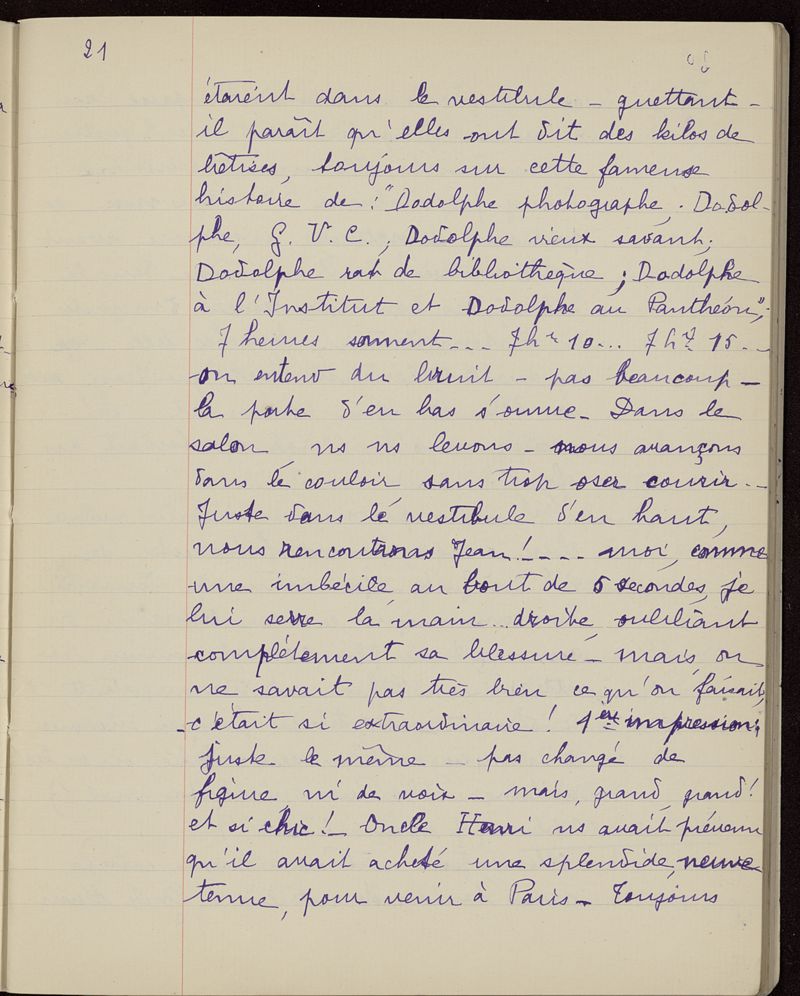 21
étaient dans le vestibule – guettant –
il paraît qu'elles ont dit des kilos de
bêtises, toujours sur cette fameuse
histoire de : "Dodolphe photographe. Dodol-
phe, G. V. C. ; Dodolphe vieux savant ;
Dodolphe rat de bibliothèque ; Dodolphe
à l'Institut et Dodolphe au Panthéon",
7 heures sonnent... 7h rs 10... 7h rs 15...
on entend du bruit – pas beaucoup –
la porte d'en bas s'ouvre – Dans le
salon ns ns levons – nous avançons
dans le couloir sans trop oser courir...
Juste dans le vestibule d'en haut,
nous rencontrons Jean !.... moi, comme
une imbécile au bout de 5 secondes, je
lui serre la main... droite, oubliant
complétement sa blessure – mais, on
ne savait pas très bien ce qu'on faisait,
c'était si extraordinaire ! 1ère impression :
Juste le même – pas changé de
figure, ni de voix – mais, grand, grand !
et si chic ! – Oncle Henri ns avait prévenu
qu'il avait acheté une splendide, neuve
tenue, pour venir à Paris – Toujours